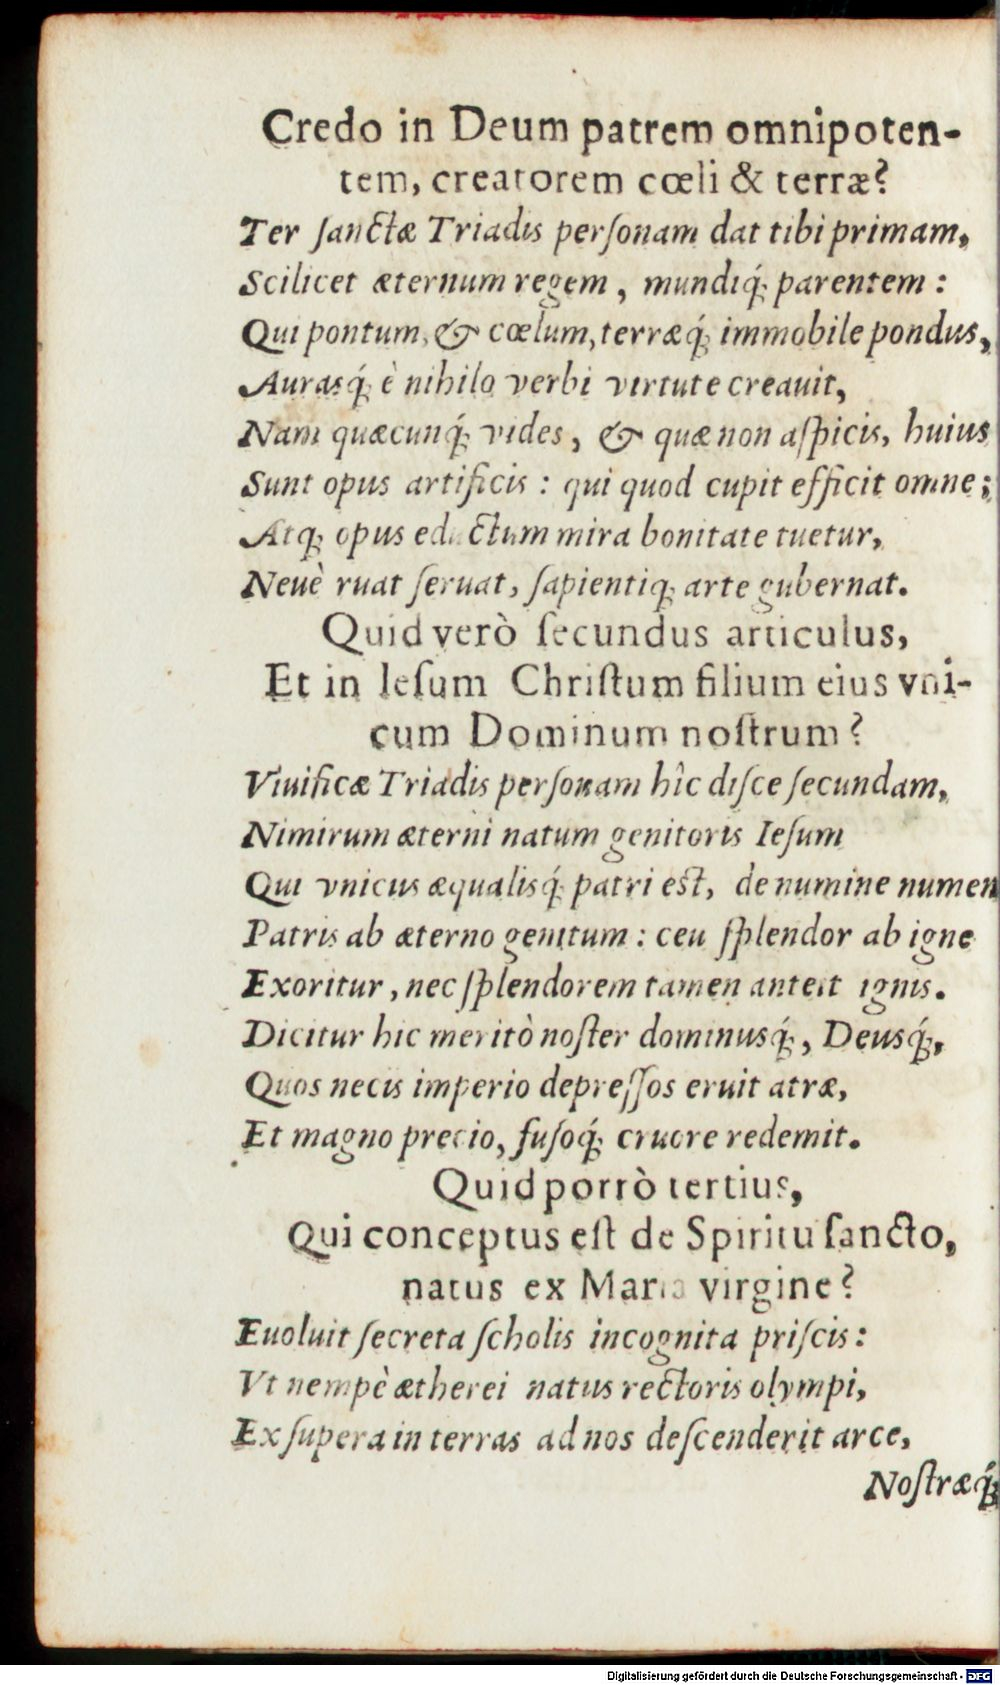 Credo in Deum patrem omnipoten-
tem, creatorem cœli & terræ?
Ter ſanctæ Triadis perſonam dat tibi primam,
Scilicet æternum regem, mundiq́; parentem:
Qui pontum, & cœlum, terræq́; immobile pondus,
Aurasq́; è nihilo verbi virtute creauit,
Nam quæcunq́; vides, & quæ non aſpicis, huius
Sunt opus artificis: qui quod cupit efficit omne;
Atq; opus eductum mira bonitate tuetur,
Neuè ruat ſeruat, ſapientiq; arte gubernat.
Quid verò ſecundus articulus,
Et in Ieſum Chriſtum filium eius vni-
cum Dominum noſtrum?
Viuificæ Triadis perſonam hîc diſce ſecundam,
Nimirum æterni natum genitoris Ieſum
Qui vnicus æqualisq́; patri eſt, de numine numen
Patris ab æterno genitum: ceu ſplendor ab igne
Exoritur, nec ſplendorem tamen anteit ignis.
Dicitur hic meritò noſter dominusq́;, Deusq́;,
Quos necis imperio depreſſos eruit atræ,
Et magno precio, fuſoq́; cruore redemit.
Quid porrò tertius,
Qui conceptus eſt de Spiritu ſancto,
natus ex Maria virgine?
Euoluit ſecreta ſcholis incognita priſcis:
Vt nempè ætherei natus rectoris olympi,
Ex ſupera in terras ad nos deſcenderit arce,
Noſtræq́;
Digitalisierung gefördert durch die Deutsche Forschungsgemeinschaft - DFG